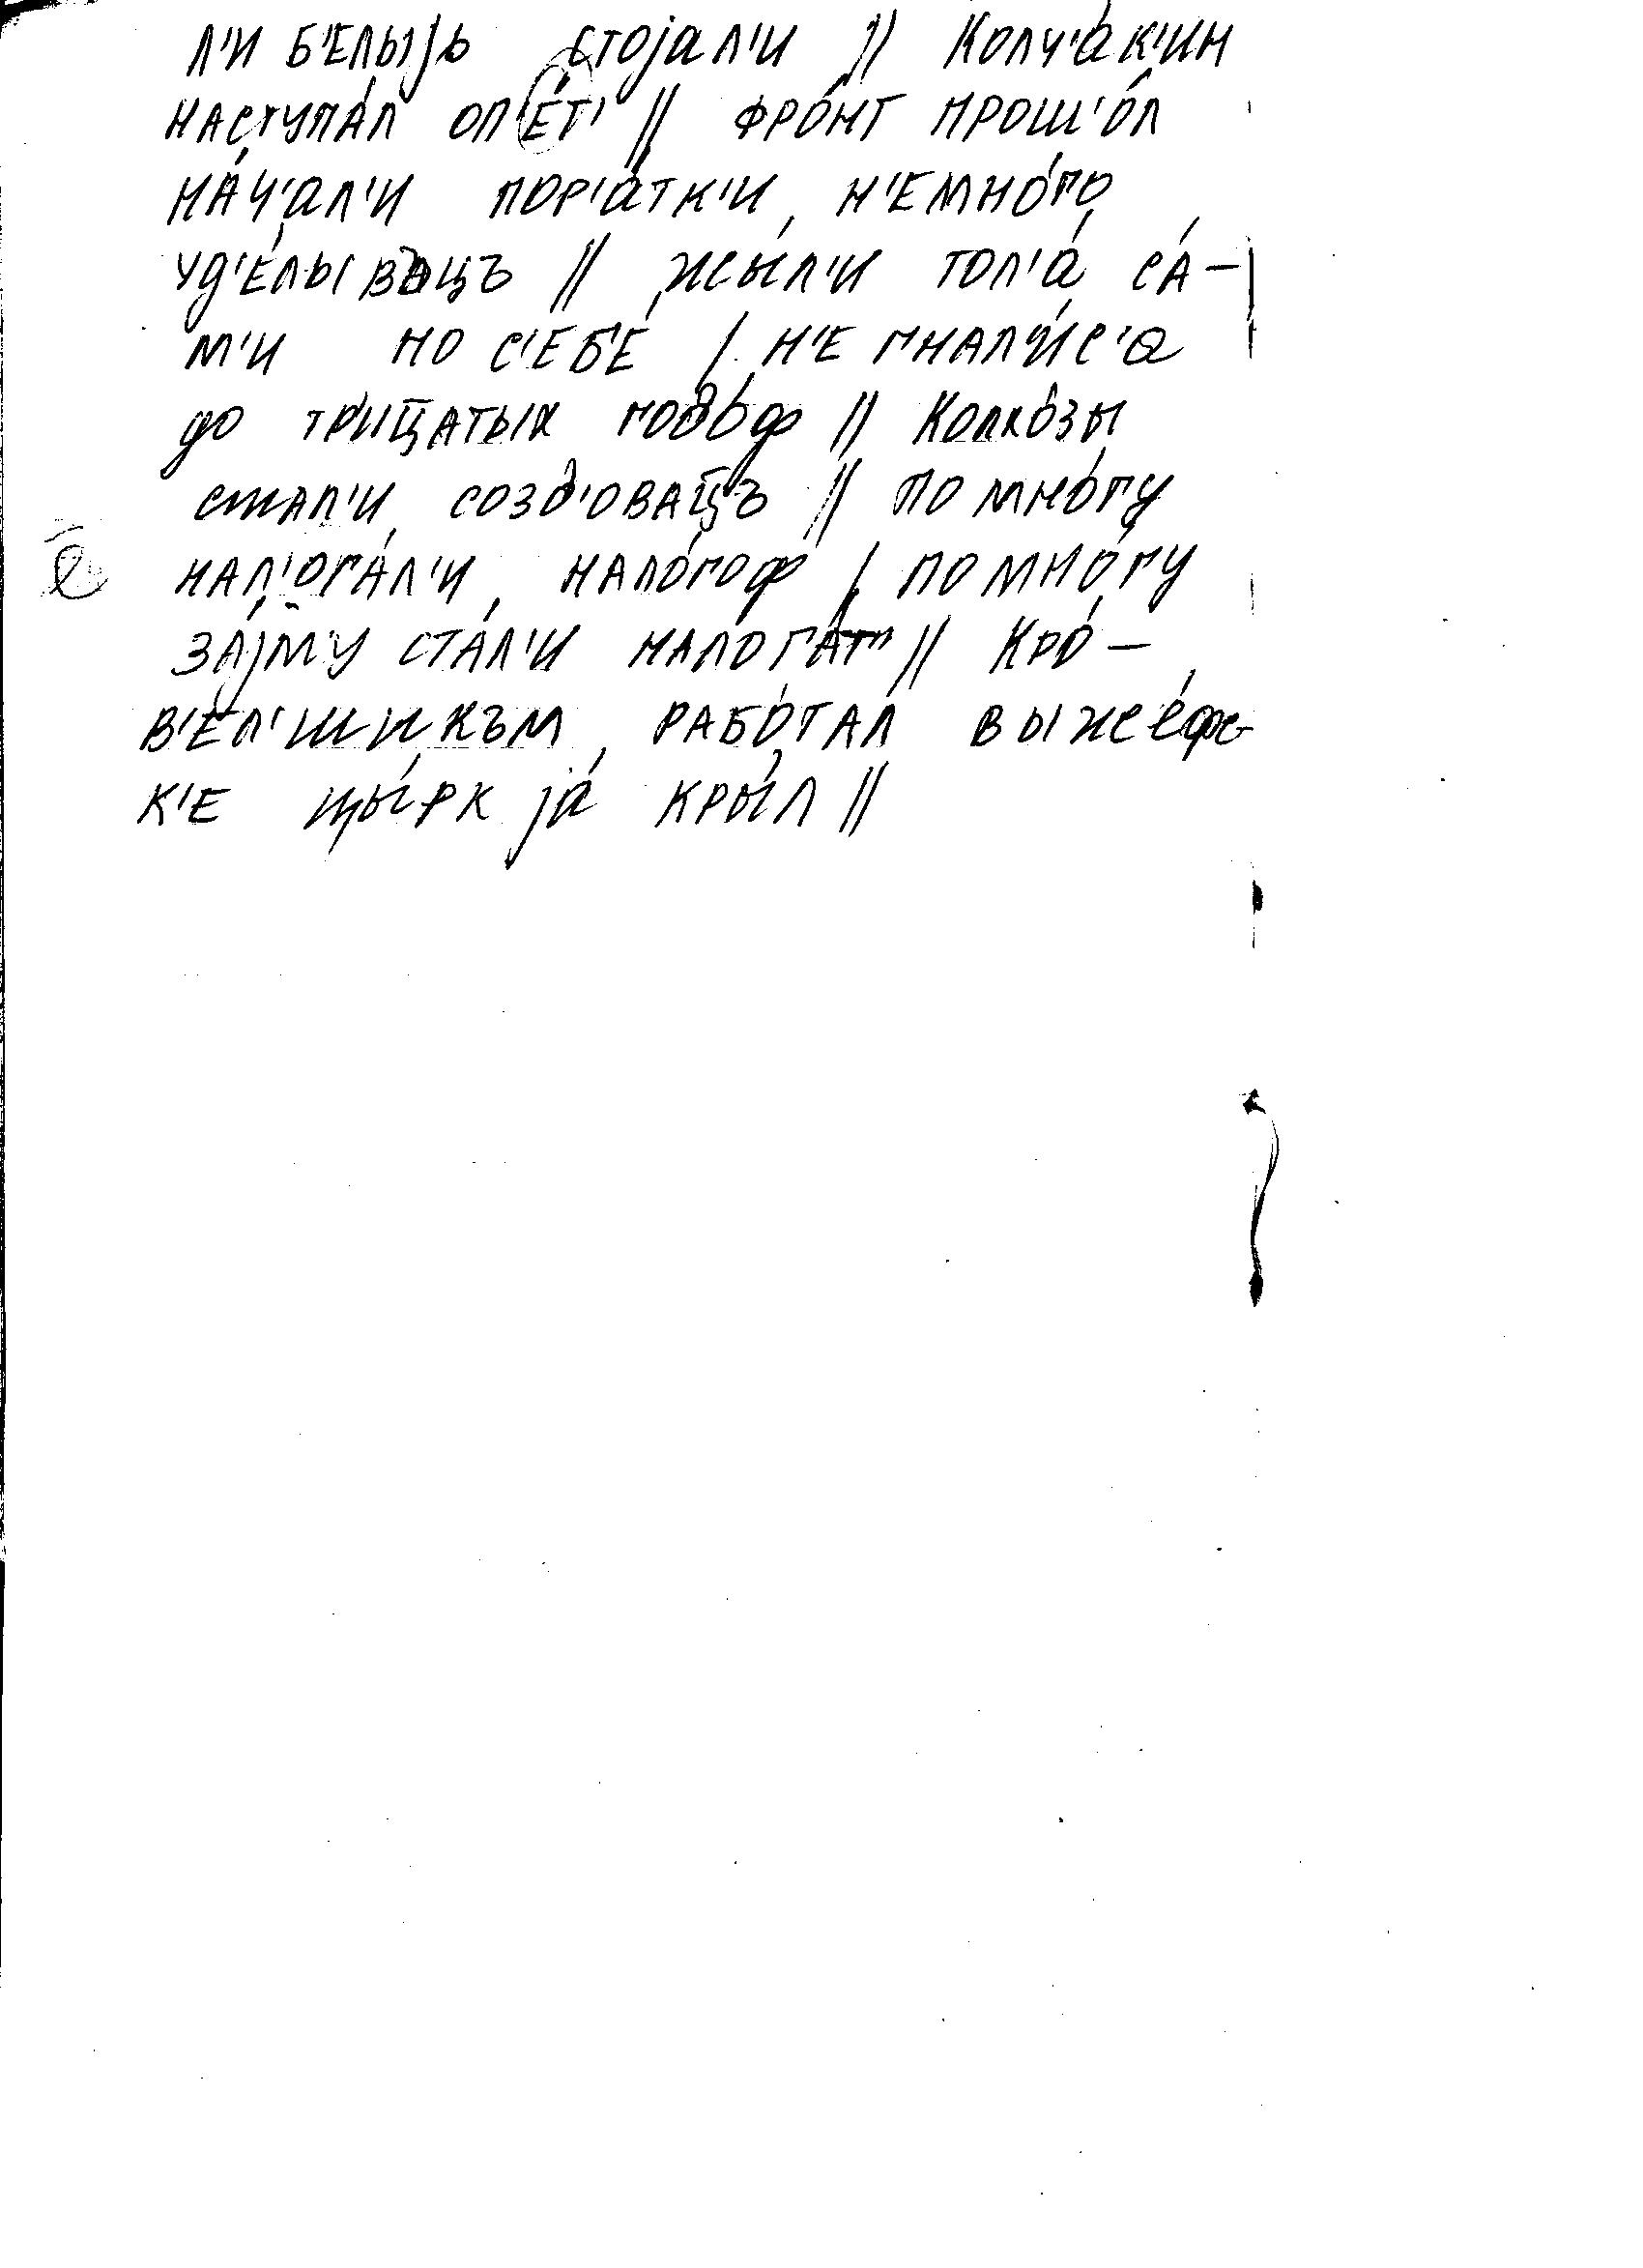 л'и б'е́лыjь стоjал'и || Колч'а́к'ин
наступа́л оп'е́т' || фро́нт прош'о́л
на́ч'ал'и пор'а́тк'и н'емно́го
уд'е́лывац̅ъ || жы́л'и тол'а́ са́-
м'и по с'еб'е́ | н'е гнал'и́с'а
до три́ц̅атых годо́ф || Колхо́зы
стал'и созд'овац̅ъ || по мно́гу
е̅ нал'ога́л'и нало́гоф | по мно́гу
за́jму ста́л'и налога́т' || Кро́-
в'е́л'шикъм рабо́тал выже́фс-
к'е цы́рк jа́ кры́л ||